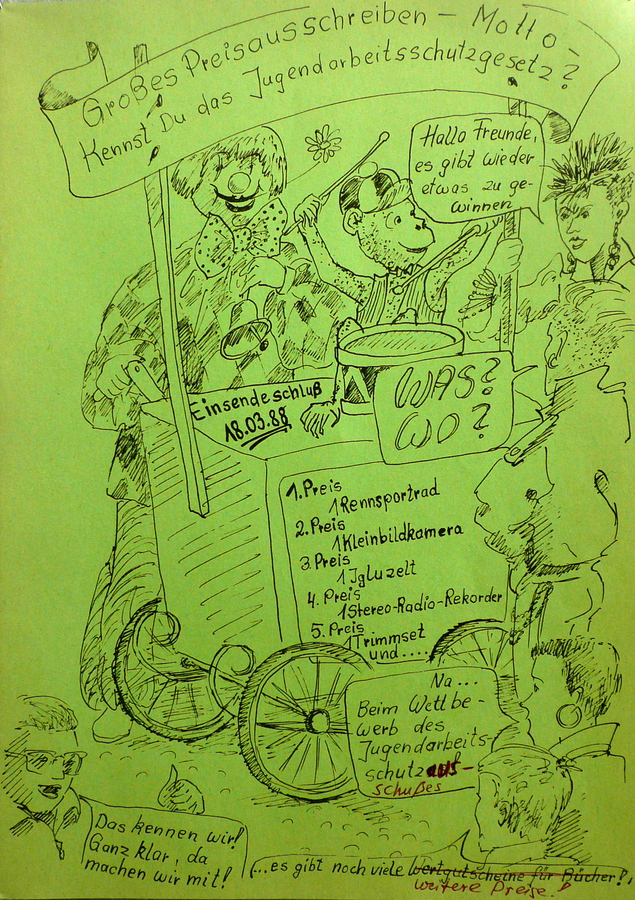 Großes Preisausschreiben - Motto -
Kennst Du das Jugendarbeitsschutzgesetz?
Hallo Freunde,
es gibt wieder
etwas zu ge-
winnen
Einsendeschluß
18.03.88
WAS?
WO?
1. Preis
1 Rennsportrad
2. Preis
1 Kleinbildkamera
3. Preis
1 Igluzelt
4. Preis
1 Stereo-Radio-Rekorder
5. Preis
1 Trimmset
und....
Na...
Beim Wettbe-
werb des
Jugendarbeits-
schutzaus-
schußes
Das kennen wir!
Ganz klar, da
machen wir mit!
...es gibt noch viele Wertgutscheine für Bücher!
weitere Preise!